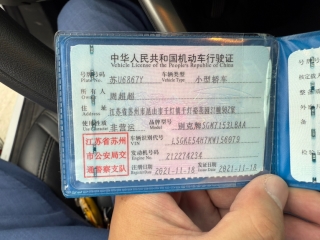 中华人民共和国机动车行驶证
Vehicle License of the People's Republic of China
号牌号码 苏U6867Y 车辆类型 小型轿车
Plate No. Vehicle Type
所有人 周超超
Owner
住址 江苏省苏州市昆山市千灯镇千灯
Address
使用性质 非营运 品牌型号
Use Character Model
江苏省苏州
市公安局交
通警察支队
车辆识别代号
VIN
发动机号码 212274234
Engine No.
注册日期 2021-11-18 发证日期 2021-11-18
Register Date Issue Date